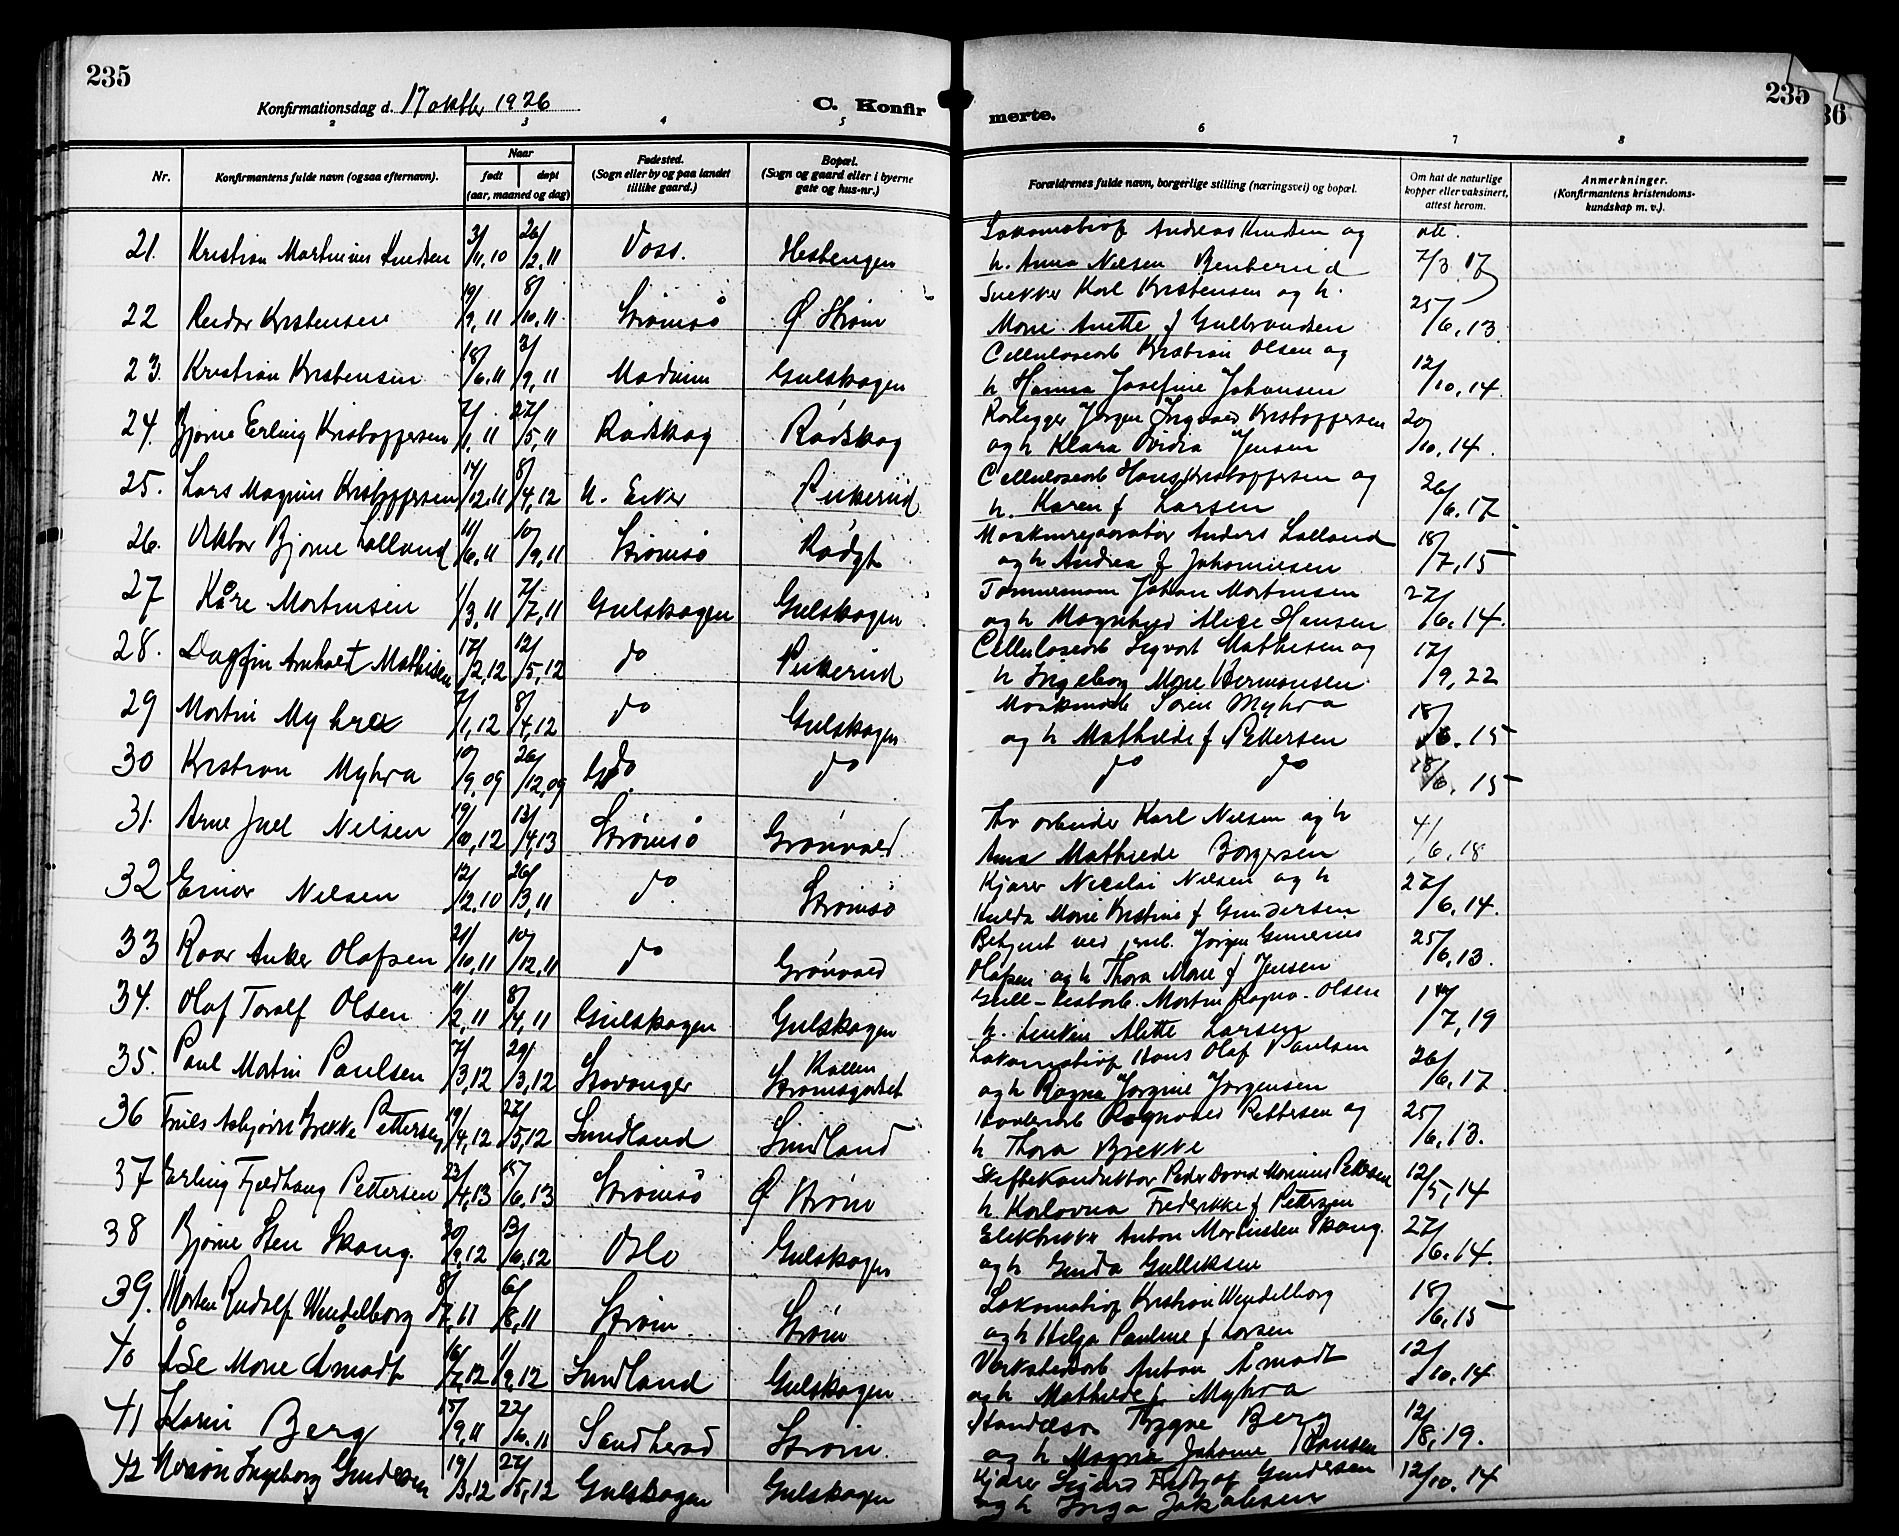 235
Konfirmationsdag d. 17 oktbr 1926
C. Konfir
merte.
235
36
2 3 4 5 6 7 8
Nr. Konfirmantens fulde navn (ogsaa efternavn). Naar født døpt (aar, maaned og dag) Fødested. (Sogn eller by og paa landet tillike gaard.) Bopæl. (Sogn og gaard eller i byerne gate og hus-nr.) Forældrenes fulde navn, borgerlige stilling (næringsvei) og bopæl. Om hat de naturlige kopper eller vaksinert, attest herom. Anmerkninger. (Konfirmantens kristendoms-kundskap m. v.).
Lokomotivf Andreas Knudsen og att.
21. Kristian Martinius Knudsen 3/11,10 26/2,11 Voss. Hestengen h. Anna Nilsen Benterud 7/3 17
Snekker Karl Kristensen og h.
22 Reidar Kristensen 19/9,11 8/10,11 Strømsø Ø Strøm Marie Anette f Gulbrandsen 25/6,13
Cellulosearb Kristian Olsen og
23. Kristian Kristensen 18/6,11 3/9,11 Modum Gulskogen h Hanna Josefine Johansen 12/10,14
Rørlegger Jørgen Ingvald Kristoffersen
24. Bjarne Erling Kristoffersen 7/1,11 27/5,11 Rødskog Rødskog og h Klara Ovidia Jensen 20/10,14.
Celluloseark Hans Kristoffersen og
25. Lars Magnus Kristoffersen 14/12,11 8/4,12 N. Eiker Pukerud h. Karen f Larsen 26/6,17
Maskinreparatør Anders Lolland
26. Viktor Bjarne Lolland 11/6,11 10/9,11 Strømsø Rødgt og h Andrea f Johannesen 18/7,15
Tømmermann Johan Martinsen
27 Kåre Martinsen 1/3,11 2/7,11 Gulskogen Gulskogen og h Magnhild Alice Hansen 27/6,14.
Celluloseark Sigvart Mathisen og
28. Dagfin Arnholdt Mathisen 17/2,12 12/5,12 do Pukerud h Ingeborg Marie Hermansen 17/9,22
Søren Myhra
29 Martin Myhra 2/1,12 8/4,12 do Gulskogen og h Mathilde f Pettersen 18/6.15
30 Kristian Myhra 10/9,09 26/12,09 do do do do 18/6.15
arbeider Karl Nilsen og h
31. Arne Juel Nilsen 19/10,12 13/4,13 Strømsø Grønvold Anna Mathilde Borgersen 4/6,18
Kjører Nicolai Nilsen og h
32 Einar Nilsen 12/12,10 26/3,11 do Strømsø Hulda Marie Kristine f Gundersen 27/6,14.
Betjent ved Jørgen
33 Roar Anker Olafsen 21/10,11 10/12,11 do Grønvold Olafsen og h Thora Marie f Jensen 25/6,13.
Martin Olsen
34. Olaf Toralf Olsen 11/2,11 8/4,11 Gulskogen Gulskogen h. Alette Larsen 7,19
Lokomotivf Hans Olaf Paulsen
35. Paul Martin Paulsen 7/3,12 29/3,12 Stavanger Strømsgodset og h Ragna Jørgine Jørgensen 26/6,17
Ragnvald Pettersen og
36 Truls Asbjørn Brekke Pettersen 19/4,12 27/5,12 Sundland Sundland h Thora Brekke 25/6,13.
Skiftekonduktør Peder David Marinius Pettersen
37 Erling Fjeldhaug Pettersen 23/4,13 15/6,13 Strømsø Ø Strøm h. Karlovna Frederikke f Pettersen 12/5,14
Elektriker Anton Martinsten Skaug.
38 Bjarne Sten Skaug. 30/9,12 13/10,12 Oslo Gulskogen og h Gunda Gulliksen 27/6.14.
Lokomotivf Kristian Wendelborg
39. Morten Rudolf Wendelborg 8/7,11 6/8,11 Strøm. Strøm og h Helga Pauline f Larsen 18/6,15
Verkstedarb Anton Åmodt
40 Åse Marie Åmodt 16/7,12 1/9,12 Sundland Gulskogen og h Mathilde f Myhra 12/10,14
Trygve Berg
41 Karin Berg 15/9,11 22/10.11 Sandherad Strøm. og h Magna Johanne Hansen 12/8,19.
Kjører Gundersen
42 Ingeborg Gundersen 19/3,12 27/5,12 Gulskogen Gulskogen og h Inga Jakobsen 12/10,14